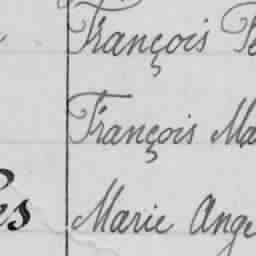 François Pe
François Ma
es Marie Ange